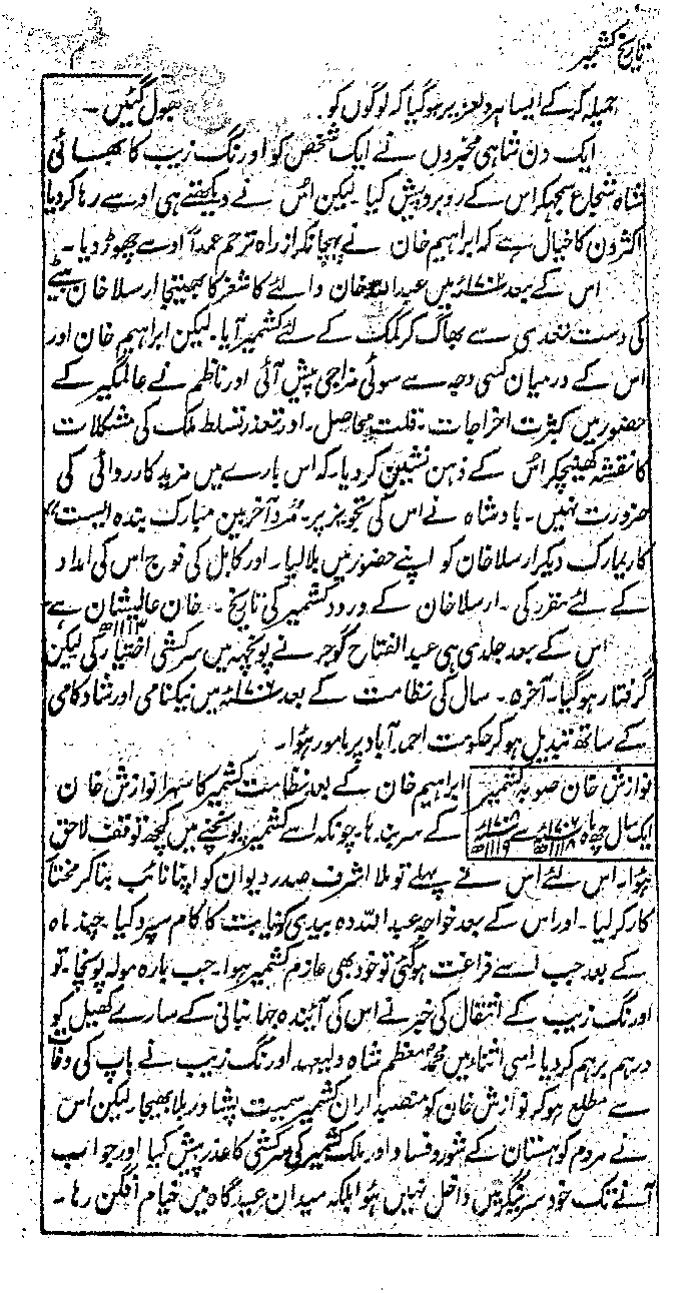 تاریخ کشمیر
جمیلہ کر کے ایسا ہر دلعزیز ہو گیا کہ لوگوں کو بھول گئیں۔
ایک دن شاہی مخبروں نے ایک شخص کو اورنگ زیب کا بھائی
شاہ شجاع سمجہکر اس کے روبرو پیش کیا لیکن اس نے دیکھتے ہی اوسے رہا کر دیا
اکثرون کا خیال ہے کہ ابراہیم خان نے پہچانکر از راہ ترحم عمداً اوسے چھوڑ دیا۔
اس کے بعد ۱۷۰۲ء میں عبد اللہ خان والئے کاشغر کا بھتیجا ارسلا خان
کی دست تعدی سے بھاگ کر کمک کے لئے کشمیر آیا۔ لیکن ابراہیم خان اور
اس کے درمیان کسی وجہ سے سوئی مزاجی پیش آئی اور ناظم نے عالمگیر کے
حضور میں کثرت اخراجات۔ قلت محاصل۔ اور تعذر تسلط ملک کی مشکلات
کا نقشہ کھینچکر اس کے ذہن نشین کر دیا۔ کہ اس بارے میں مزید کارروائی کی
ضرورت نہیں۔ بادشاہ نے اس کی تجویز پر۔ "مرد آخر بین مبارک بندہ ایست"
کا ریمارک دیکر ارسلا خان کو اپنے حضور میں بلا لیا۔ اور کابل کی فوج اس کی امداد
کے لئے مقرر کی۔ ارسلا خان کے ورود کشمیر کی تاریخ۔ خان عالیشان ہے
۱۱۱۳ھ
اس کے بعد جلدی ہی عبد الفتاح گوجر نے پونچہہ میں سرکشی اختیار کی لیکن
گرفتار ہو گیا۔ آخر ۵۔ سال کی نظامت کے بعد ۱۷۰۶ء میں نیکنامی اور شادکامی
کے ساتھ تبدیل ہو کر حکومت احمد آباد پر مامور ہؤا۔
نوازش خان صوبہ کشمیر
ایک سال چھ ماہ ۱۷۰۶ء ۱۱۱۸ھ سے ۱۷۰۸ء ۱۱۱۹ھ
ابراہیم خان کے بعد نظامت کشمیر کا سہرا نوازش خان
کے سر بندہا۔ چونکہ اسے کشمیر پہونچنے میں کچھ توقف لاحق
ہؤا۔ اس لئے اس نے پہلے تو ملا اشرف صدر دیوان کو اپنا نائب بنا کر مختار
کار کر لیا۔ اور اس کے بعد خواجہ عبد اللہ دہ بیدی کو نیابت کا کام سپرد کیا۔ چند ماہ
کے بعد جب اسے فراغت ہو گئی تو خود بھی عازم کشمیر ہوا۔ جب بارہ مولہ پونچا۔ تو
اورنگ زیب کے انتقال کی خبر نے اس کی آئندہ جہانبانی کے سارے کھیل کو
درہم برہم کر دیا۔ اسی اثناء میں محمد معظم شاہ ولیعہد اورنگ زیب نے باپ کی وفات
سے مطلع ہو کر نوازش خان کو منصبداران کشمیر سمیت پشاور بلا بھیجا۔ لیکن اس
نے مردم کوہستان کے شور و فساد اور ملک کشمیر کی سرکشی کا عذر پیش کیا اور جواب
آنے تک خود سرینگر میں داخل نہیں ہؤا بلکہ میدان عیدگاہ میں خیام افگن رہا۔